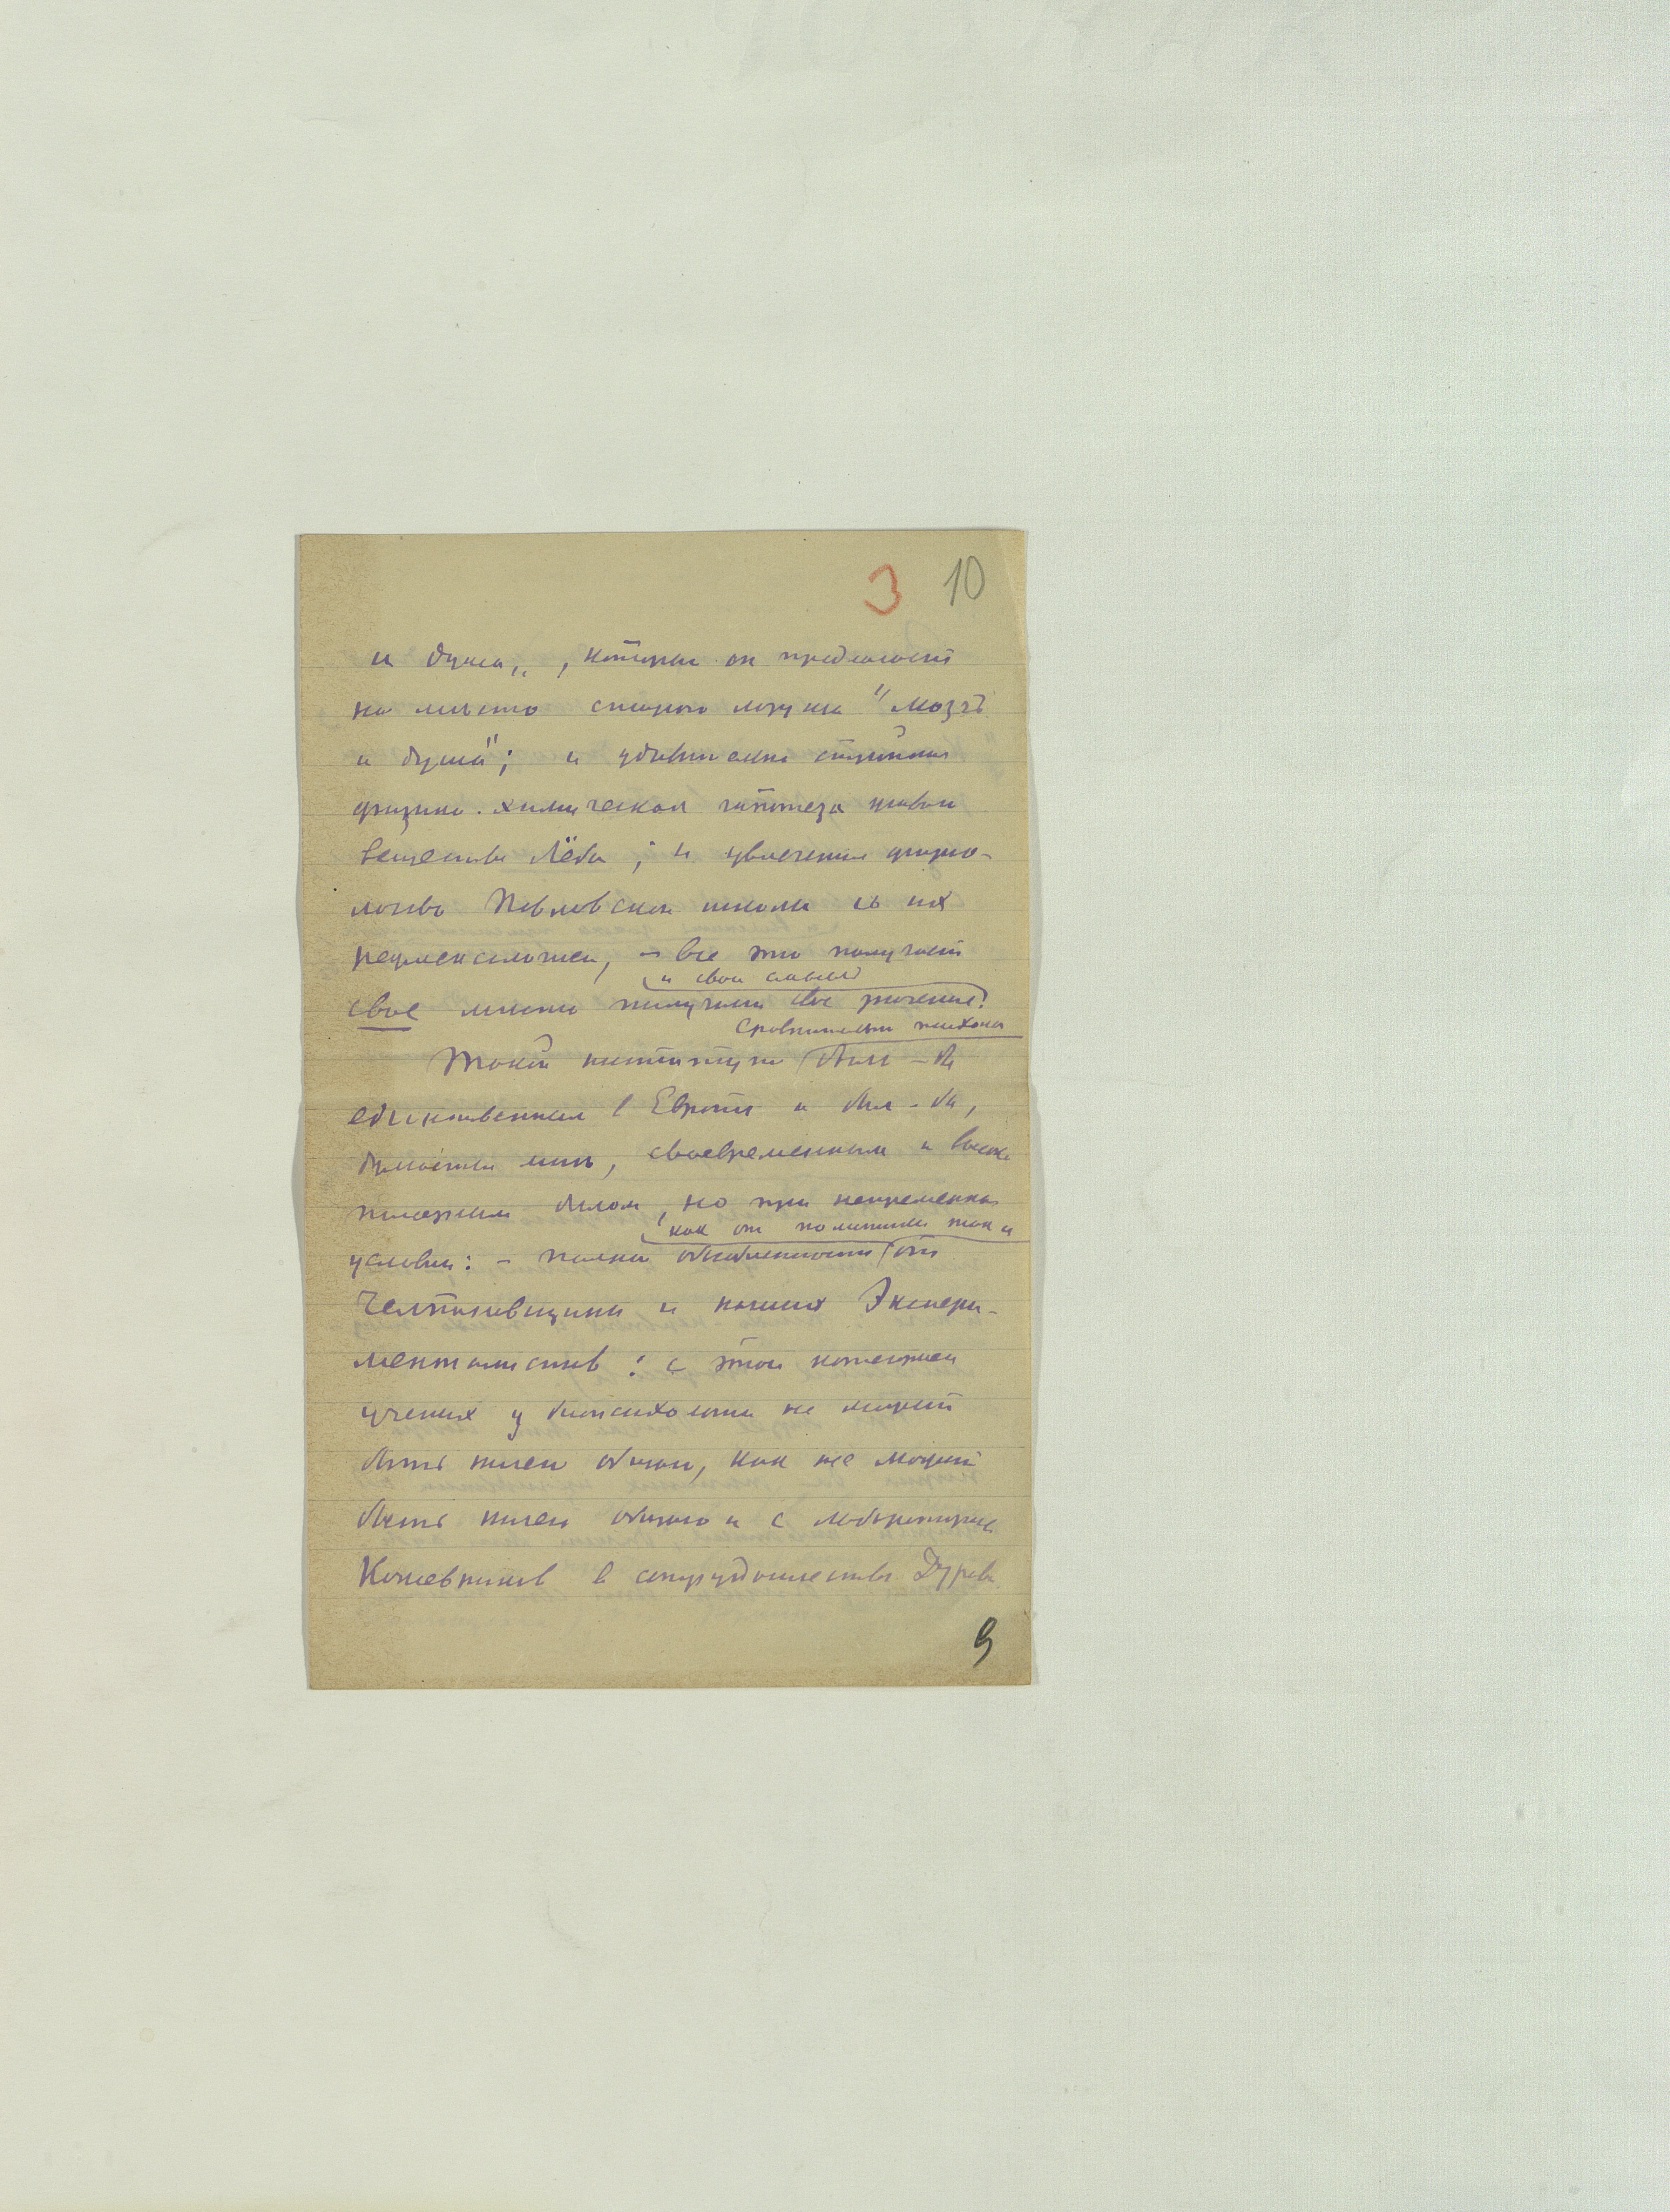 3 10
и душа„, который он предлагает
на место старого лозунга "мозг
и душа"; и удивительно стройная
физико-химическая гипотеза живого
вещества Лёба; и увлечения физио-
логов Павловской школы с их
рефлексологией, — все это получает
и свой смысл
свое место получает свое значение!
сравнительной психолог
Такой институт был-бы
единственным в Европе и был-бы,
думается мне, своевременным и высоко
полезным делом, но при непременном
как от политики так и
условии: — полной обособленности от
Челпановщины и наших Экспери-
менталистов: с этой категорией
ученых у биопсихолога не может
быть ничего общего, как не может
быть ничего общего и с лабораторией
Кожевников в сотрудничестве Дурова.
9